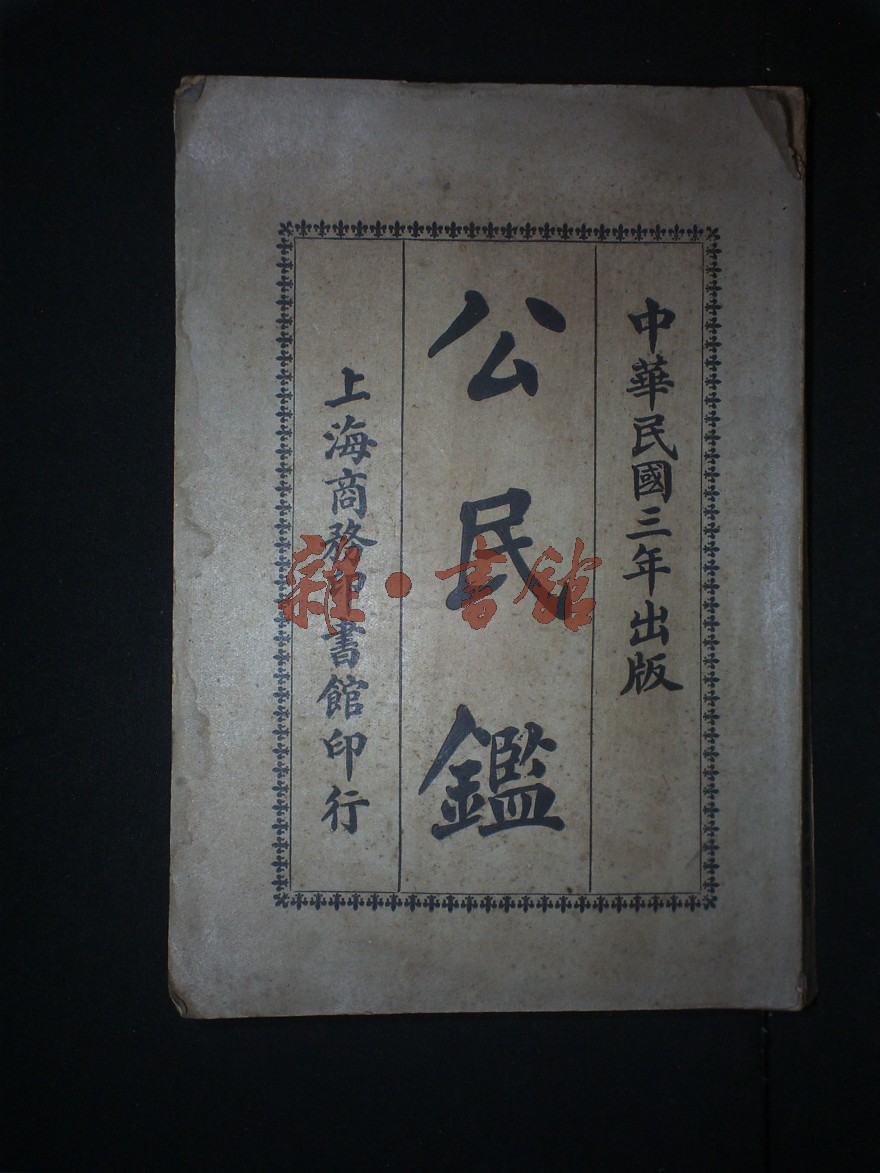 中華民國三年出版
公民鑑
上海商務印書館印行
雜·書館